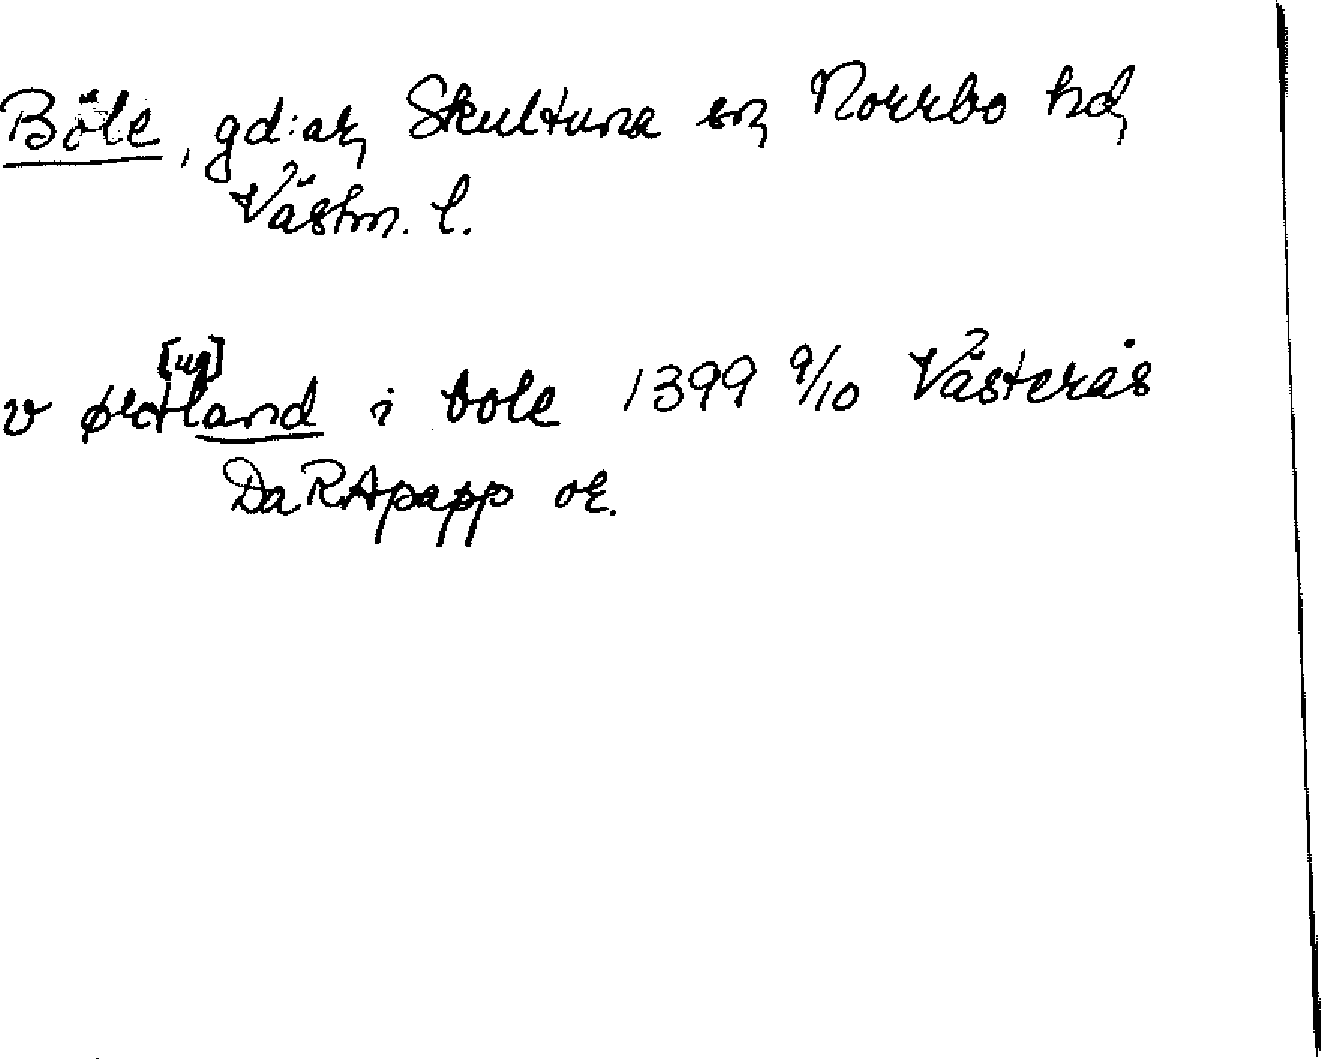 Böle, gd:ar, Skultuna sn, Norrbo hd,
Västm. l.
[ug]
v ørtland i bole 1399 9/10 Västerås
DaRApapp or.